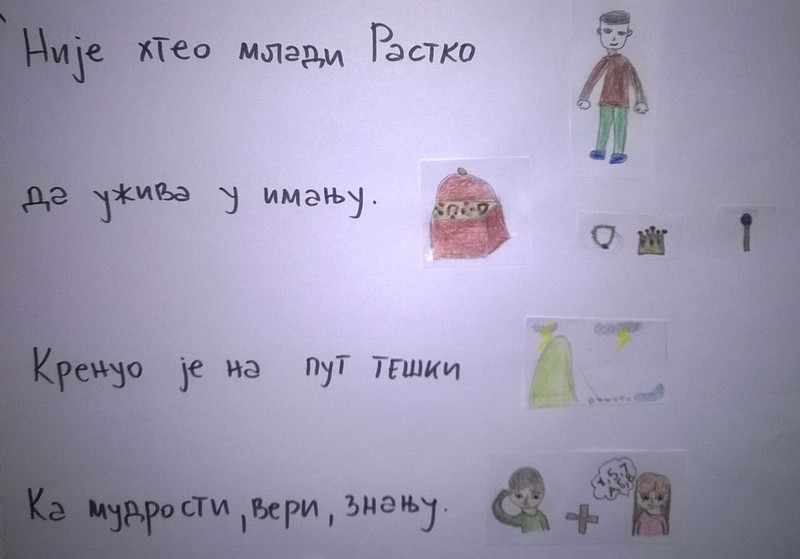 Није хтео млади Растко
да ужива у имању.
Кренуо је на пут тешки
Ка мудрости, вери, знању.